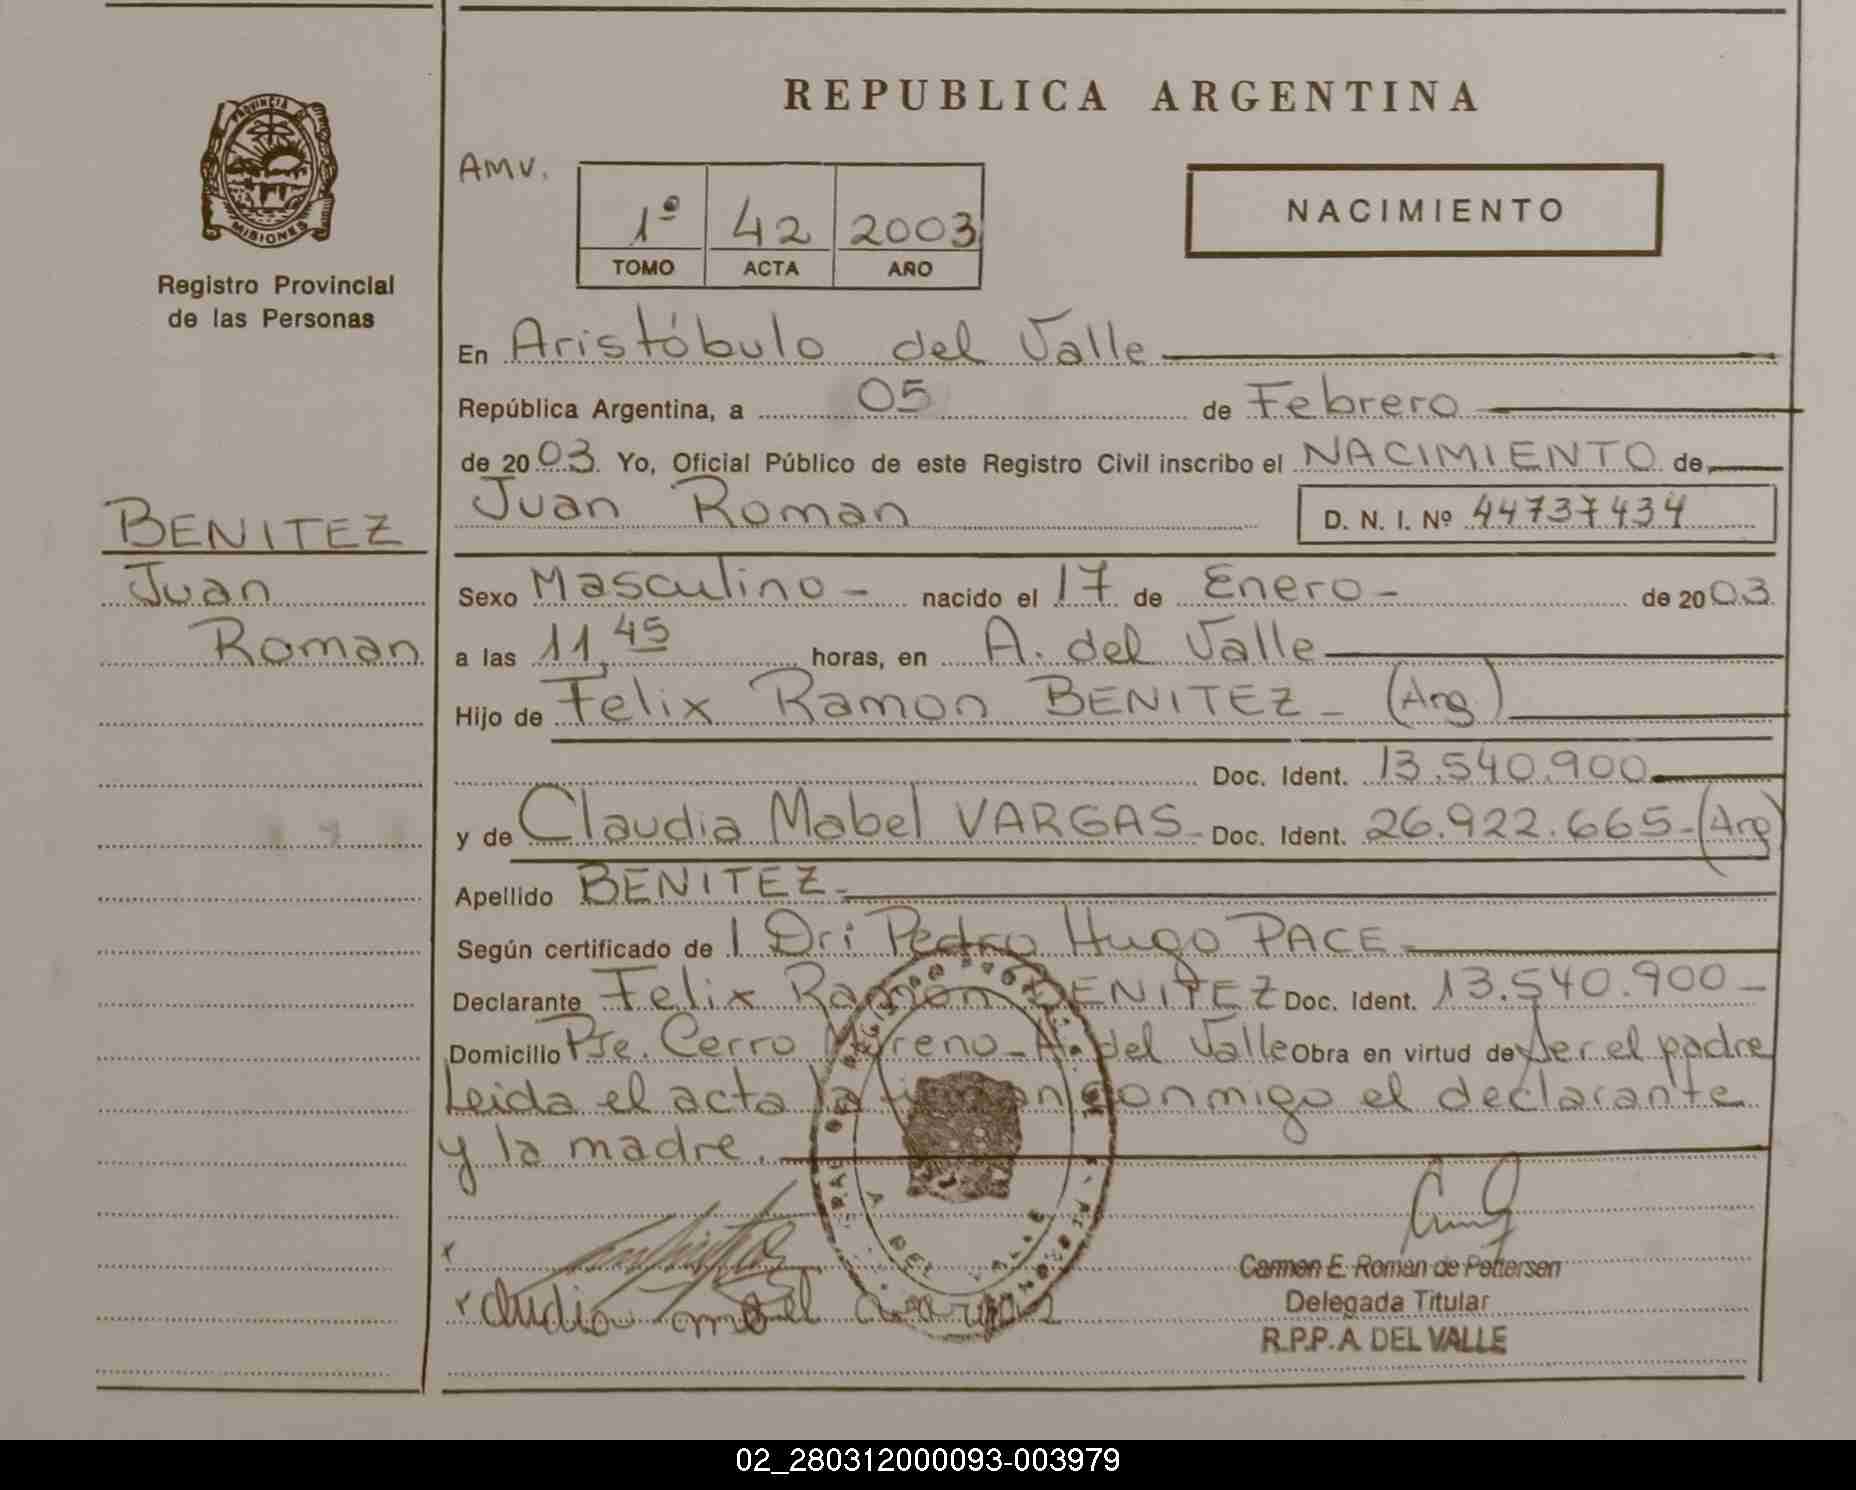 REPUBLICA ARGENTINA
PROVINCIA DE
MISIONES
Registro Provincial
de las Personas
AMV.
1º 42 2003
TOMO ACTA AÑO
NACIMIENTO
En Aristóbulo del Valle
República Argentina, a 05 de Febrero
de 2003. Yo, Oficial Público de este Registro Civil inscribo el NACIMIENTO de
Juan Roman D. N. I. Nº 44737434
BENITEZ
Juan
Roman
Sexo Masculino - nacido el 17 de Enero - de 2003
a las 11,45 horas, en A. del Valle
Hijo de Felix Ramon BENITEZ - (Arg)
Doc. Ident. 13.540.900
y de Claudia Mabel VARGAS - Doc. Ident. 26.922.665-(Arg)
Apellido BENITEZ-
Según certificado de Dr: Pedro Hugo PACE
Declarante Felix Ramón BENITEZ Doc. Ident. 13.540.900-
Domicilio Pje. Cerro Moreno-A. del Valle Obra en virtud de ser el padre
Leida el acta la firman conmigo el declarante
y la madre.
A DEL VALLE
Carmen E. Roman de Pettersen
Delegada Titular
R.P.P.A. DEL VALLE
02_280312000093-003979